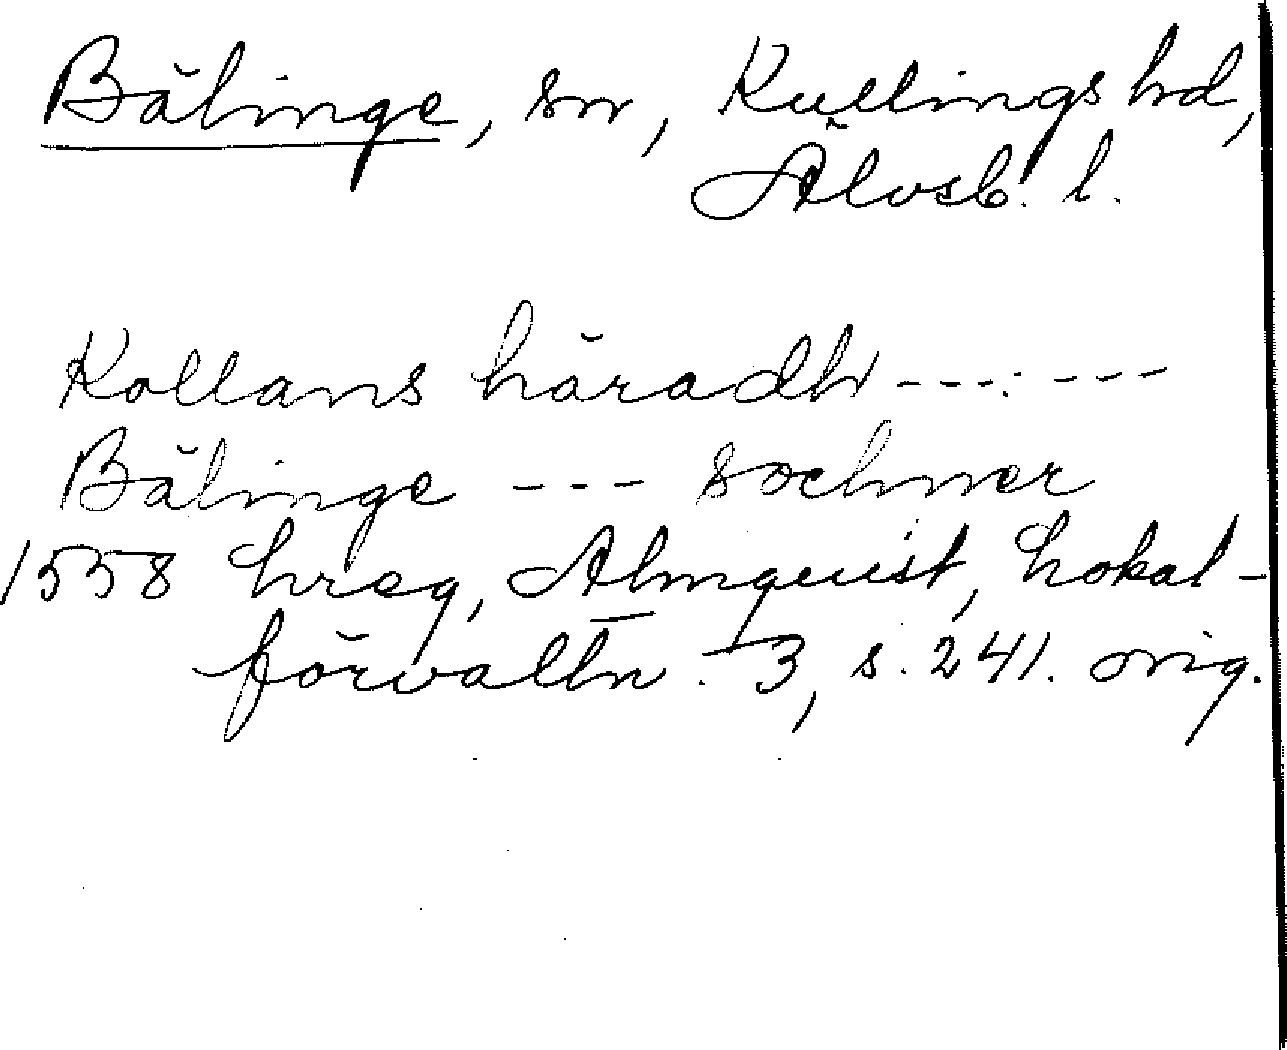 Bälinge, sn, Kullings hd,
Älvsb. l.
Kollans häradh --- ---
Bälinge --- sochner
1558 hreg, Almquist, Lokal-
förvaltn. 3, s. 241. orig.